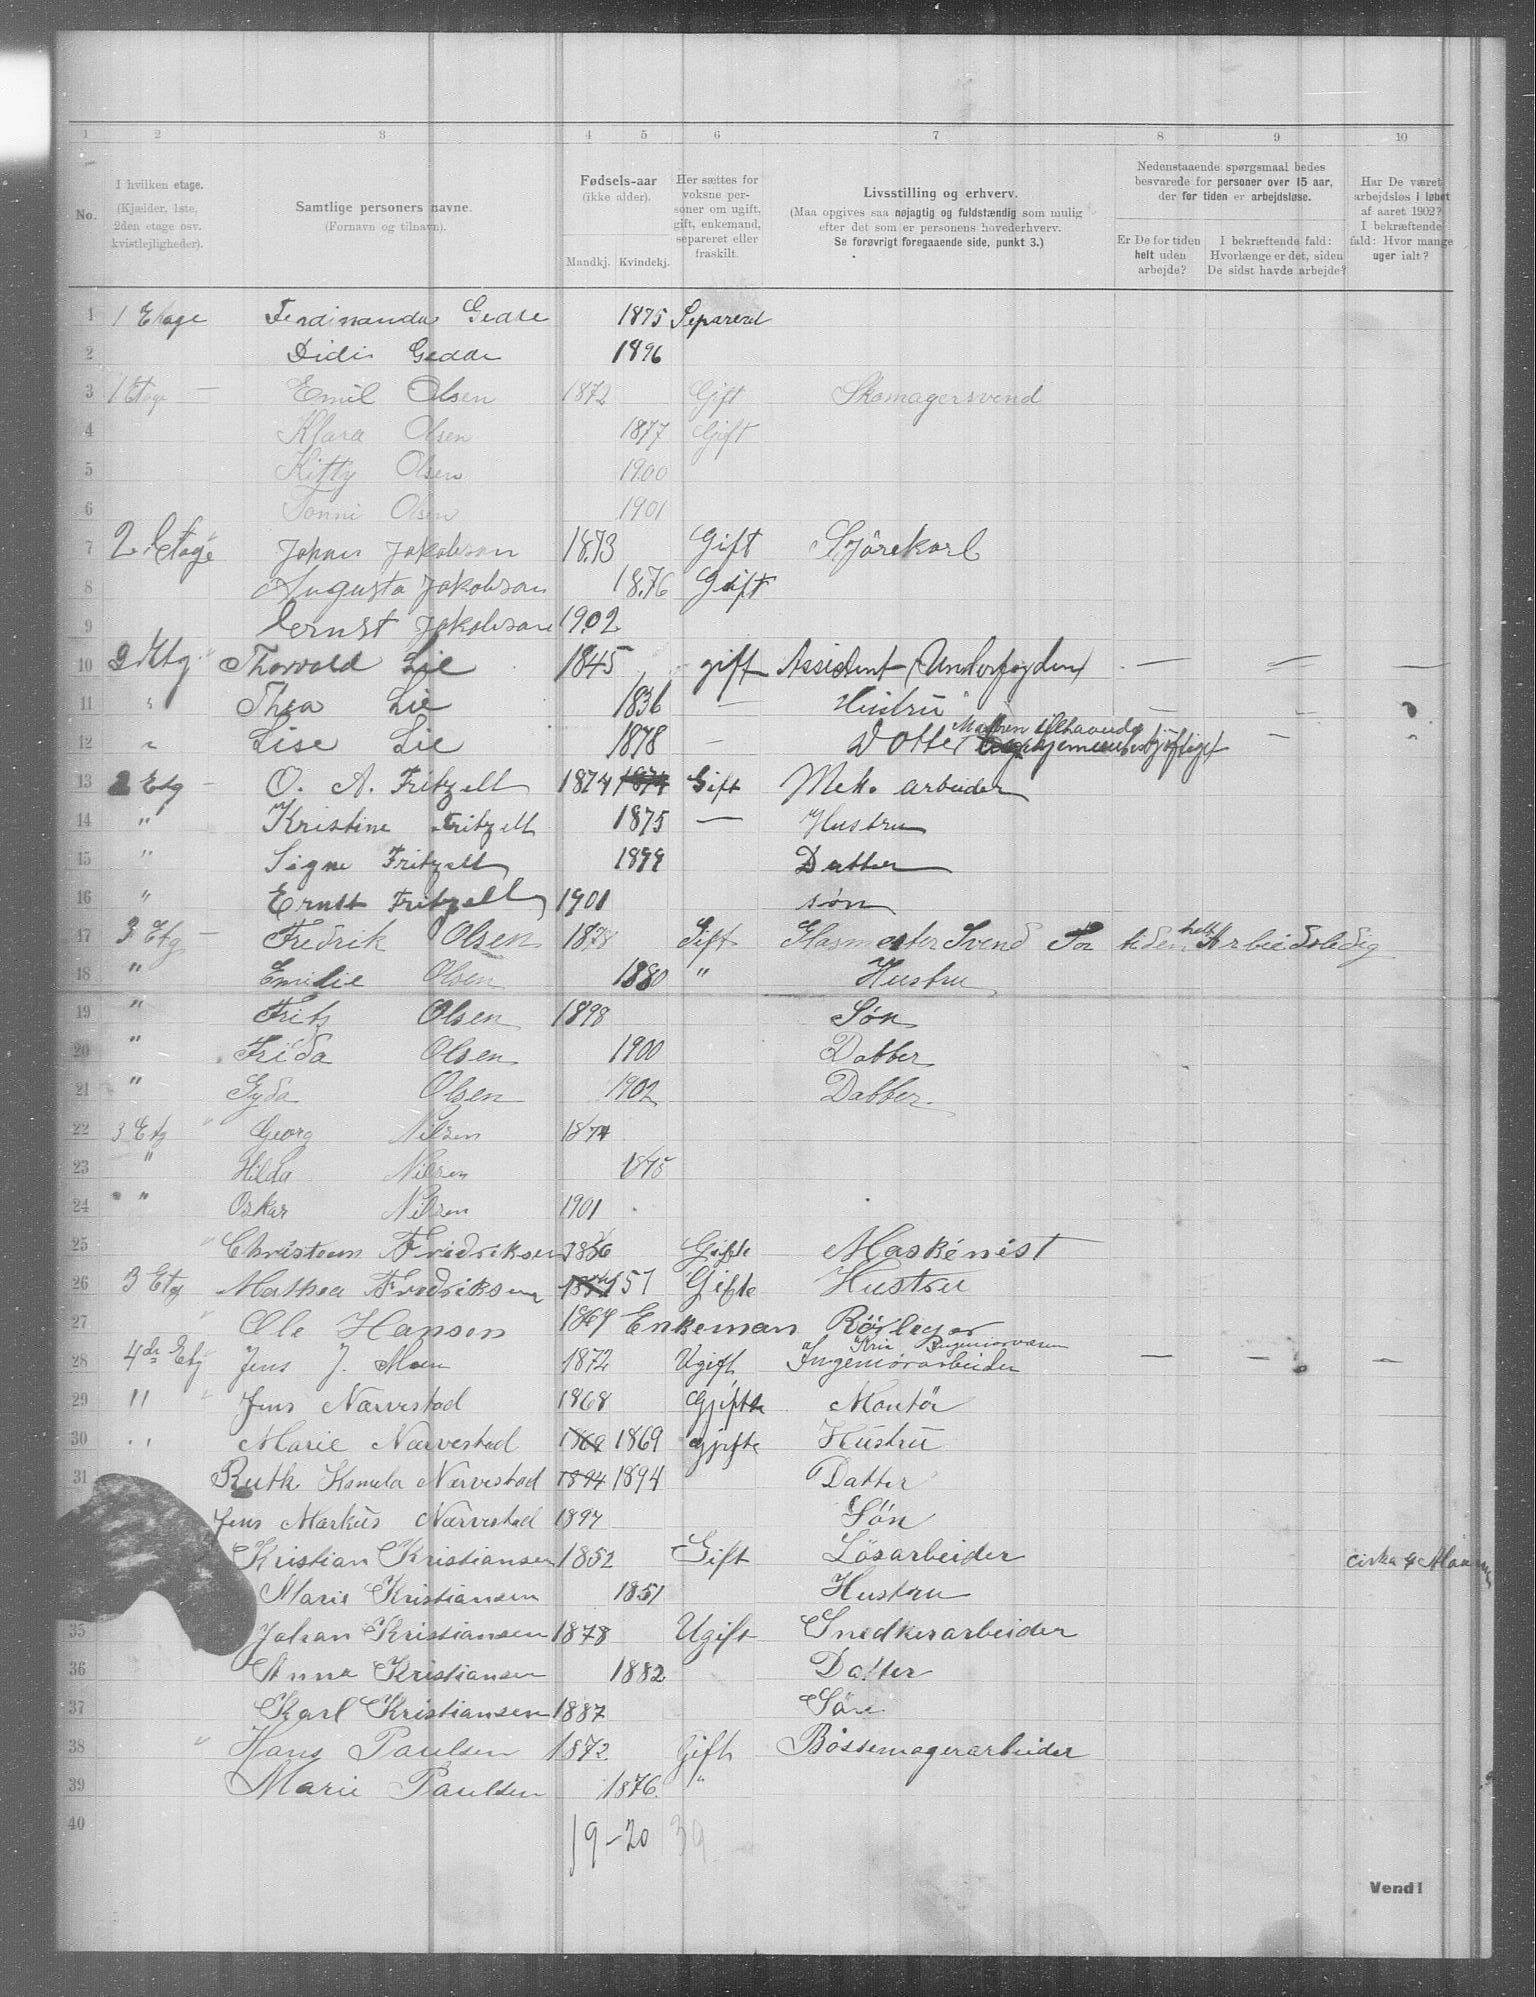 1 2 3 4 5 6 7 8 9 10
No.
I hvilken etage.
(Kjælder, 1ste,
2den etage osv.
kvistlejligheder).
Samtlige personers navne.
(Fornavn og tilnavn).
Fødsels-aar
(ikke alder).
Mandkj. Kvindekj.
Her sættes for
voksne per-
soner om ugift,
gift, enkemand,
separeret eller
fraskilt.
Livsstilling og erhverv.
(Maa opgives saa nøjagtig og fuldstændig som mulig
efter det som er personens hovederhverv.
Se forøvrigt foregaaende side, punkt 3.)
Nedenstaaende spørgsmaal bedes
besvarede for personer over 15 aar,
der for tiden er arbejdsløse.
Er De for tiden
helt uden
arbejde?
I bekræftende fald:
Hvorlænge er det, siden
De sidst havde arbejde?
Har De været
arbejdsløs i løbet
af aaret 1902?
I bekræftende
fald: Hvor mange
uger ialt?
1 1 Etage Ferdinanda Gedde 1875 Separerad
2 Didi Gedde 1896
3 1 Etage — Emil Olsen 1872 Gift Skomagersvend
4 Klara Olsen 1877 Gift
5 Kitty Olsen 1900
6 Tonni Olsen 1901
7 2 Etage Johnes Jakobson 1873 Gift Kjörekarl
8 Augusta Jakobson 1876 Gift
9 Ernst Jakobson 1902
10 2 Etg. " Thorvald Lie 1845 gift Assistent (Underfogden) — — —
11 " Thea Lie 1836 — Hustru — —
12 " Lise Lie 1878 — Dotter Modren hjemmebeskjæftiget —
13 2 Etg — O. A. Fritzell 1874 1874 Gift Mek. arbeider
14 " Kristine Fritzell 1875 — Hustru
15 " Signe Fritzell 1899 Datter
16 " Ernst Fritzell 1901 søn
17 3 Etg — Fredrik Olsen 1878 Gift Glasmester Svend For tiden helt Arbeidsledig
18 " Emilie Olsen 1880 " Hustru
19 " Fritz Olsen 1898 Søn
20 " Frida Olsen 1900 Datter
21 " Gyda Olsen 1902 Datter
22 3 Etg " Georg Nilsen 1874
23 " Hilda Nilsen 1875
24 " Oskar Nilsen 1901
25 " Christean Fredriksen 1856 Gifte Maskenist
26 3 Etg Mathea Fredriksen 57 Gifte Hustru
27 " Ole Hansen 1864 Enkeman Rörlegor
28 4de Etg Jens J. Moen 1872 Ugift Ingeniörarbeider af Kria Ingeniorvæsen — — —
29 " " Jens Narvestad 1868 Gjifte Montör
30 " Marie Narvestad 1869 1869 gjifte Hustru
31 Ruth Kamela Narvestad 1894 1894 Datter
Jens Markus Narvestad 1897 Sön
Kristian Kristiansen 1852 Gift Lösarbeider cirka 4 Maaneder
Marie Kristiansen 1851 Hustru
35 Johan Kristiansen 1878 Ugift Snedkerarbeider
36 Anna Kristiansen 1882 Datter
37 Karl Kristiansen 1887 Sön
38 " Hans Paulsen 1872 Gift Bössemagerarbeider
39 Marie Paulsen 1876 "
40
19–20 39
Vend!